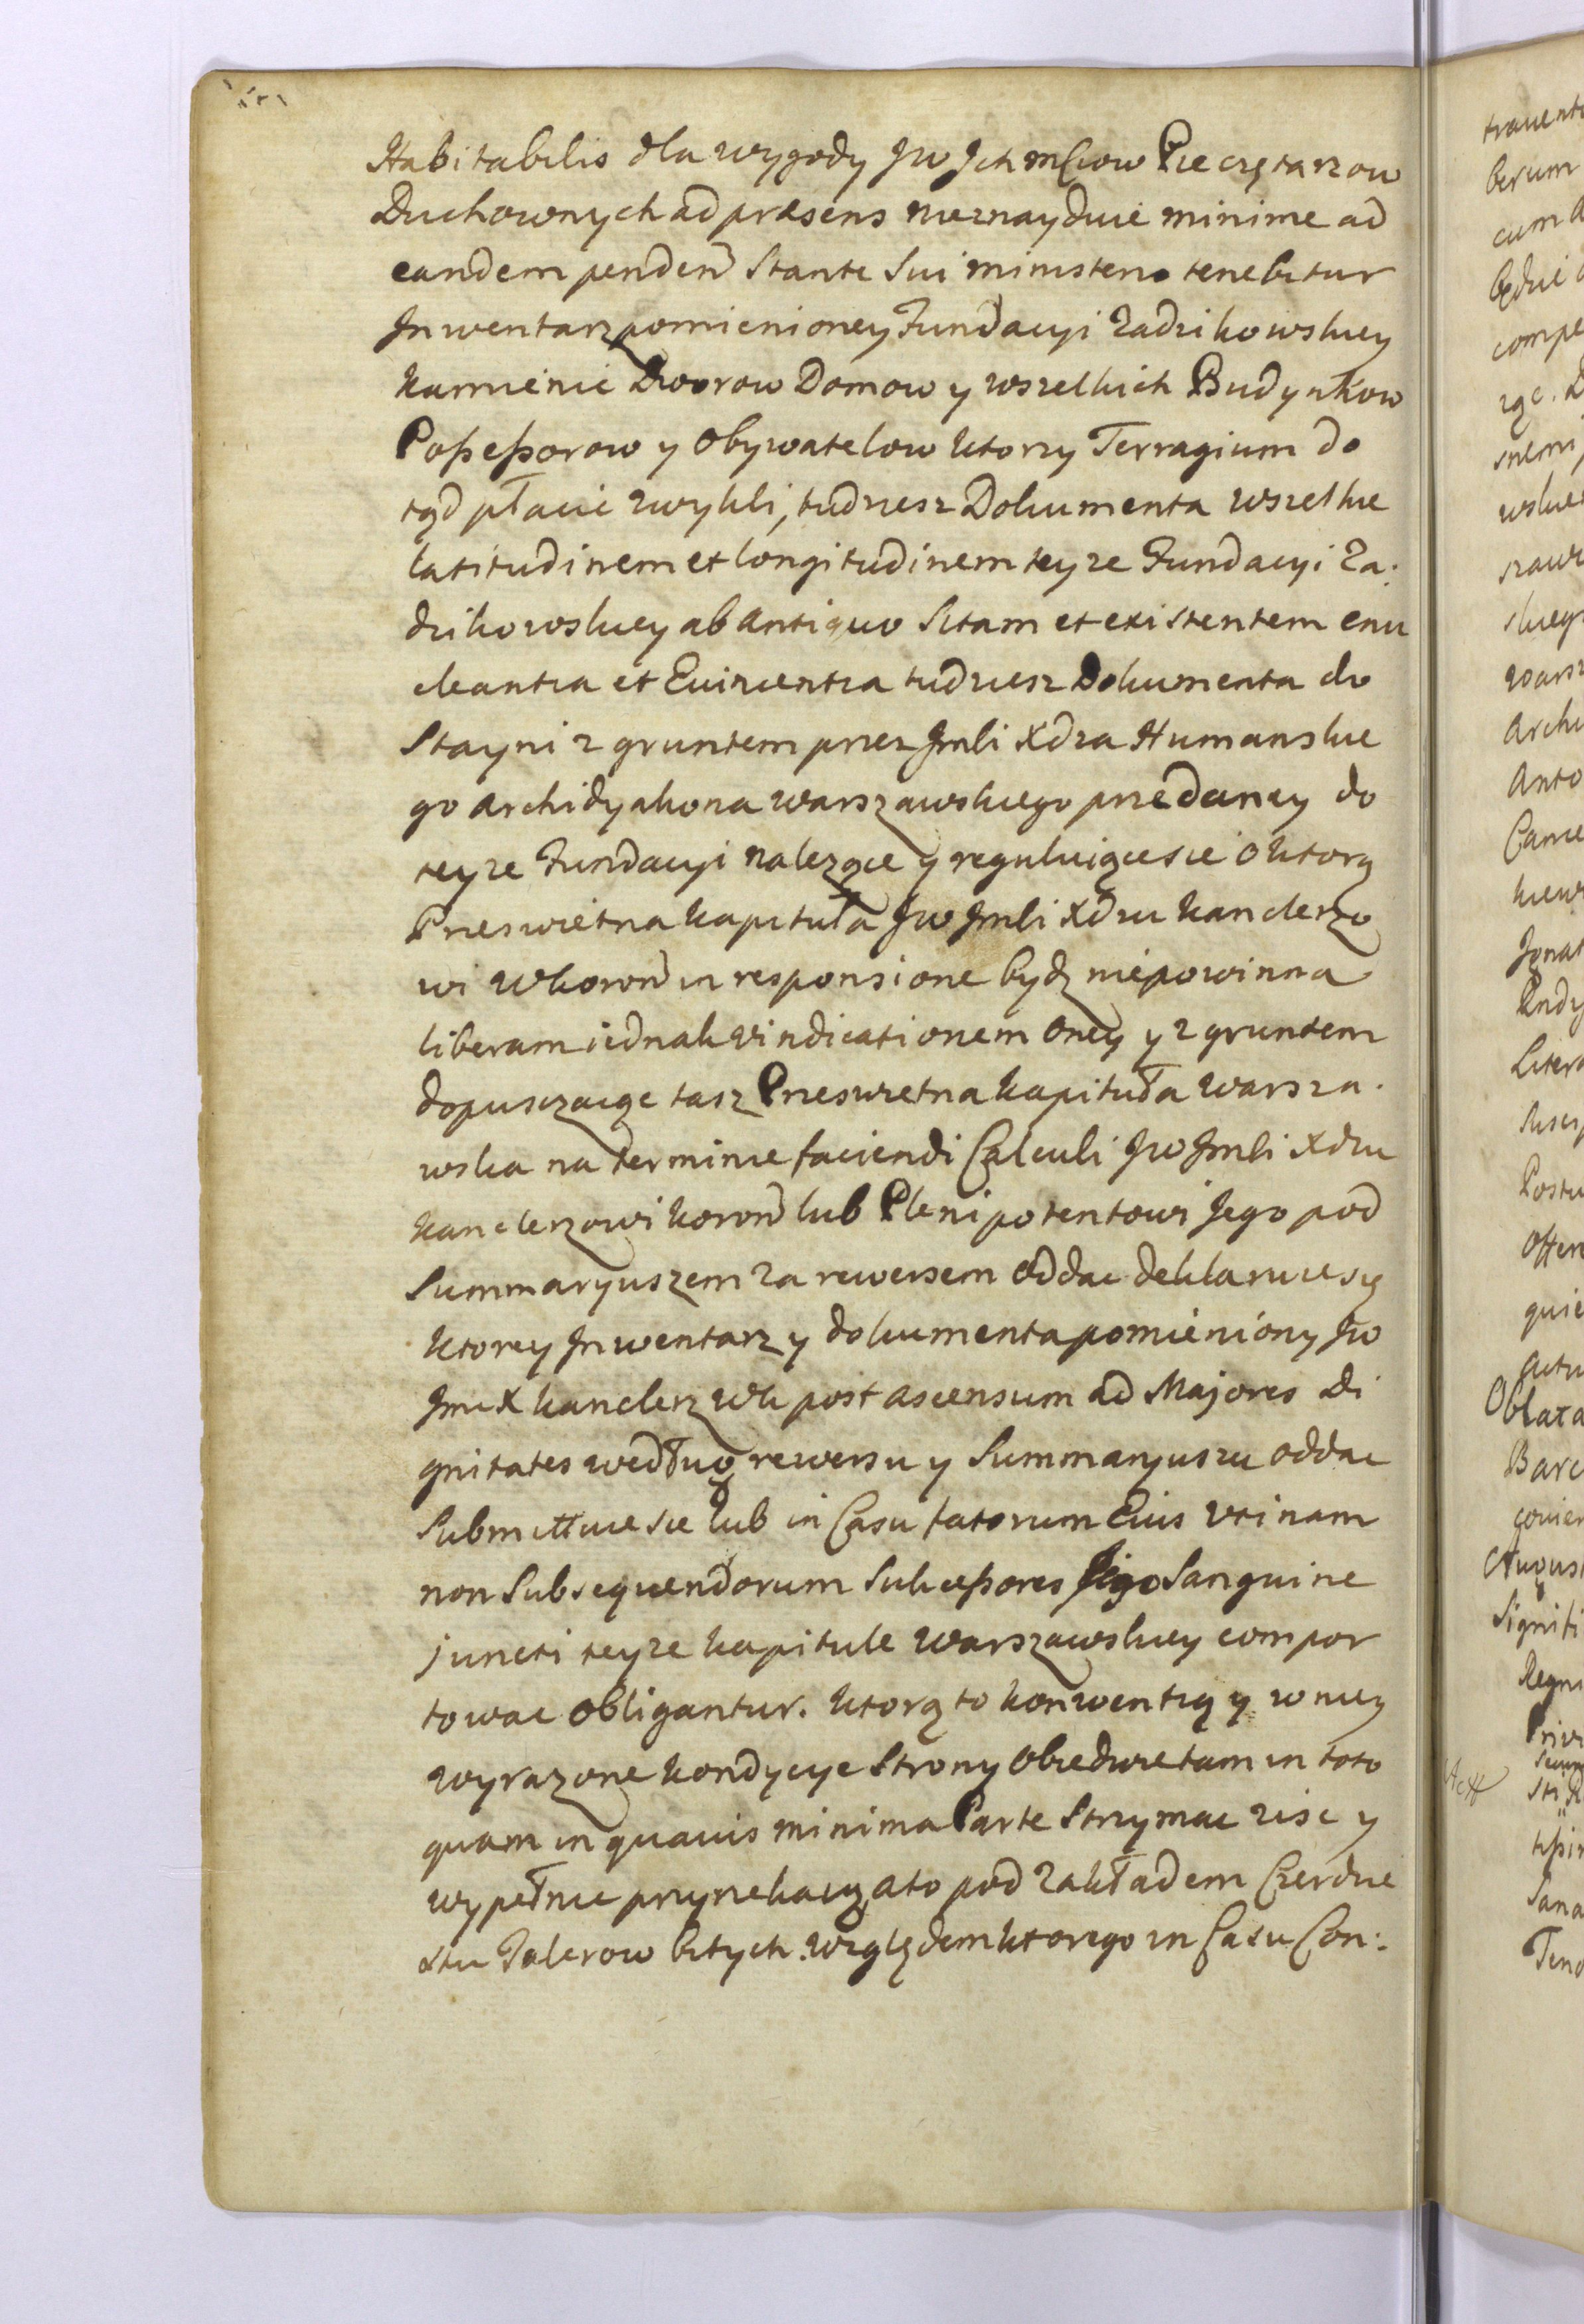 Habitabilis dla wygody Jw Jchmściow Pieczętarzow
Duchownych ad præsens nieznayduie minime ad
eandem pendend Stante Sui ministerio tenebitur
Jnwentarz pomienioney Fundacyi Zadzikowskiey
kamienic Dworow Domow y wszelkich Budynkow
Poßeßorow y Obywatelow ktorzy Terragium do
tąd płacic zwykli, tudziesz Dokumenta wszelkie
latitudinem et longitudinem teyze Fundacyi Za:
dzikowskiey ab antiquo Sitam et existentem enu
cleantia et Euincentia tudziesz Dokumenta do
Stayni z gruntem przez Jmści Xdza Humanskie
go Archidyakona warszawskiego przedaney do
teyze Fundacyi nalezące y reguluiące sie o ktorą
Przeswietna kapituła Jw Jmści Xdzu kanclerzo
wi Wkoron in responsione bydz niepowinna
liberam iednak vindicationem oney y z gruntem
dopuszczaiąc tasz Przeswietna kapituła Warsza.
wska na terminie faciendi Calculi Jw Jmści Xdzu
kanclerzowi koron lub Plenipotentowi Jego pod
Summaryuszem za rewersem oddac deklaruie się
ktorey Jnwentarz y dokumenta pomieniony Jw
Jmć X kanclerz Wk post ascensum ad Majores Di
gnitates według rewersu y Summaryuszu oddac
Submittuie sie lub in Casu fatorum Eius utinam
non Subsequendorum Sukceßores Jego Sanguine
juncti teyze kapitule warszawskiey compor
towac obligantur. ktorą to konwentią y w niey
wyrazone kondycye Strony Obiedwie tam in toto
quam in quavis minima Parte Strzymac ziśc y
wypełnic przyrzekaią, a to pod zakładem Czerdzie
stu Talerow bitych. względem ktorego in Casu Con: